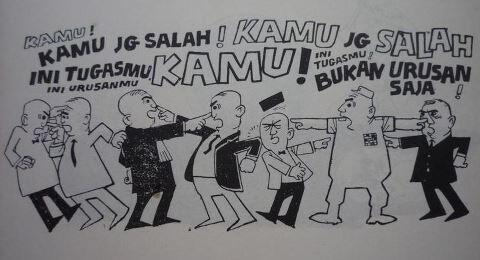 KAMU!
KAMU JG SALAH! KAMU JG SALAH
INI TUGASMU KAMU! INI TUGASMU! BUKAN URUSAN SAJA!
INI URUSANMU